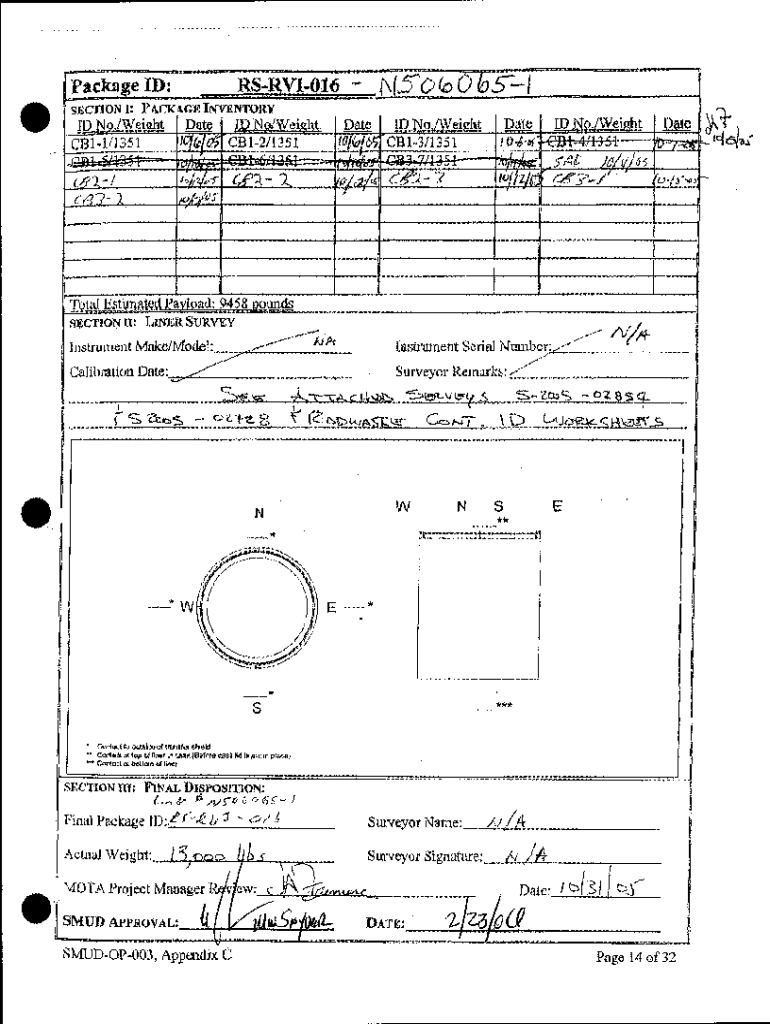 Package ID: RS-RVI-016 - N506065-1
SECTION I: PACKAGE INVENTORY
ID No./Weight Date ID No/Weight Date ID No./Weight Date ID No/Weight Date
CB1-1/1351 10/6/05 CB1-2/1351 10/6/05 CB1-3/1351 10-6-05 CB1-4/1351
CB1-5/1351 CB1-6/1351 CB3-7/1351 SAE 10/4/05
CB2-1 10/2/05 CB2-2 10/2/05 CB2-3 10/12/05 CB3-1 10-15-05
CB3-2
Total Estimated Payload: 9458 pounds
SECTION II: LINER SURVEY
Instrument Make/Model: NA Instrument Serial Number: N/A
Calibration Date: Surveyor Remarks:
SEE ATTACHED SURVEYS S-2005-02859
+ S2005-02728 + RADWASTE CONT. ID WORKSHEETS
N W N S E
* **
* W E *
* ***
S
* Contact to outside of transfer shield
** Contact at top of liner
*** Contact at bottom of liner
SECTION III: FINAL DISPOSITION:
Liner # N506065-1
Final Package ID: RS-RVI-016 Surveyor Name: N/A
Actual Weight: 13,000 lbs Surveyor Signature: N/A
MOTA Project Manager Review: Date: 10/31/05
SMUD APPROVAL: DATE: 2/23/06
SMUD-OP-003, Appendix C Page 14 of 32